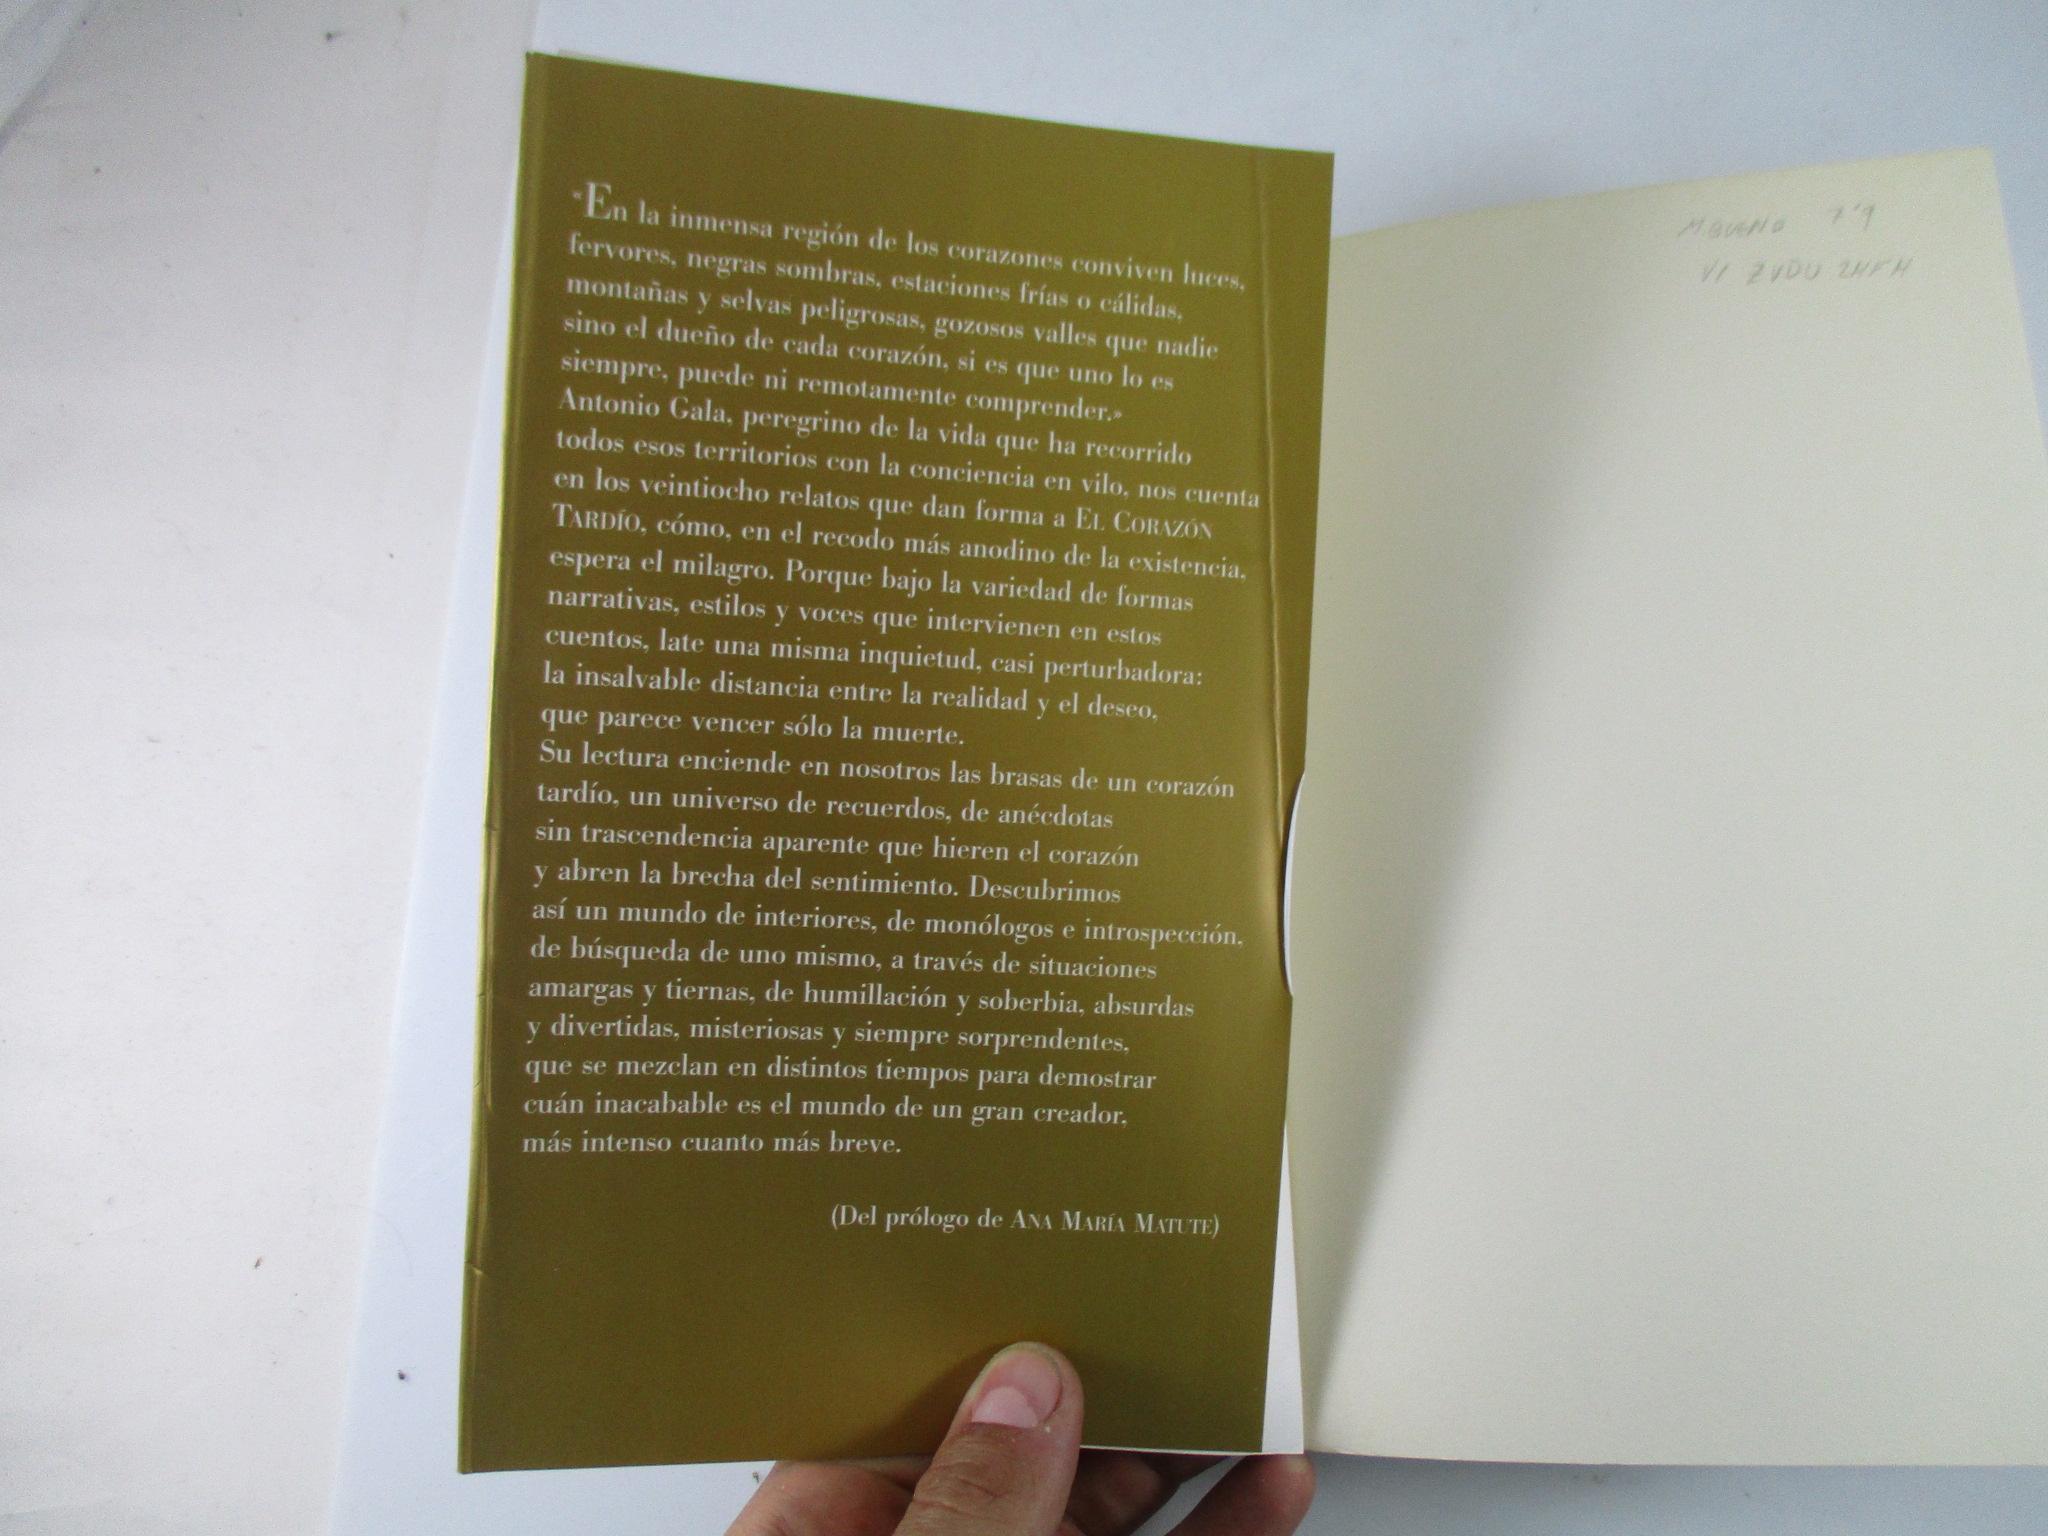 «En la inmensa región de los corazones conviven luces,
fervores, negras sombras, estaciones frías o cálidas,
montañas y selvas peligrosas, gozosos valles que nadie
sino el dueño de cada corazón, si es que uno lo es
siempre, puede ni remotamente comprender.»
Antonio Gala, peregrino de la vida que ha recorrido
todos esos territorios con la conciencia en vilo, nos cuenta
en los veintiocho relatos que dan forma a EL CORAZÓN
TARDÍO, cómo, en el recodo más anodino de la existencia,
espera el milagro. Porque bajo la variedad de formas
narrativas, estilos y voces que intervienen en estos
cuentos, late una misma inquietud, casi perturbadora:
la insalvable distancia entre la realidad y el deseo,
que parece vencer sólo la muerte.
Su lectura enciende en nosotros las brasas de un corazón
tardío, un universo de recuerdos, de anécdotas
sin trascendencia aparente que hieren el corazón
y abren la brecha del sentimiento. Descubrimos
así un mundo de interiores, de monólogos e introspección,
de búsqueda de uno mismo, a través de situaciones
amargas y tiernas, de humillación y soberbia, absurdas
y divertidas, misteriosas y siempre sorprendentes,
que se mezclan en distintos tiempos para demostrar
cuán inacabable es el mundo de un gran creador,
más intenso cuanto más breve.
(Del prólogo de ANA MARÍA MATUTE)
M.BUENO